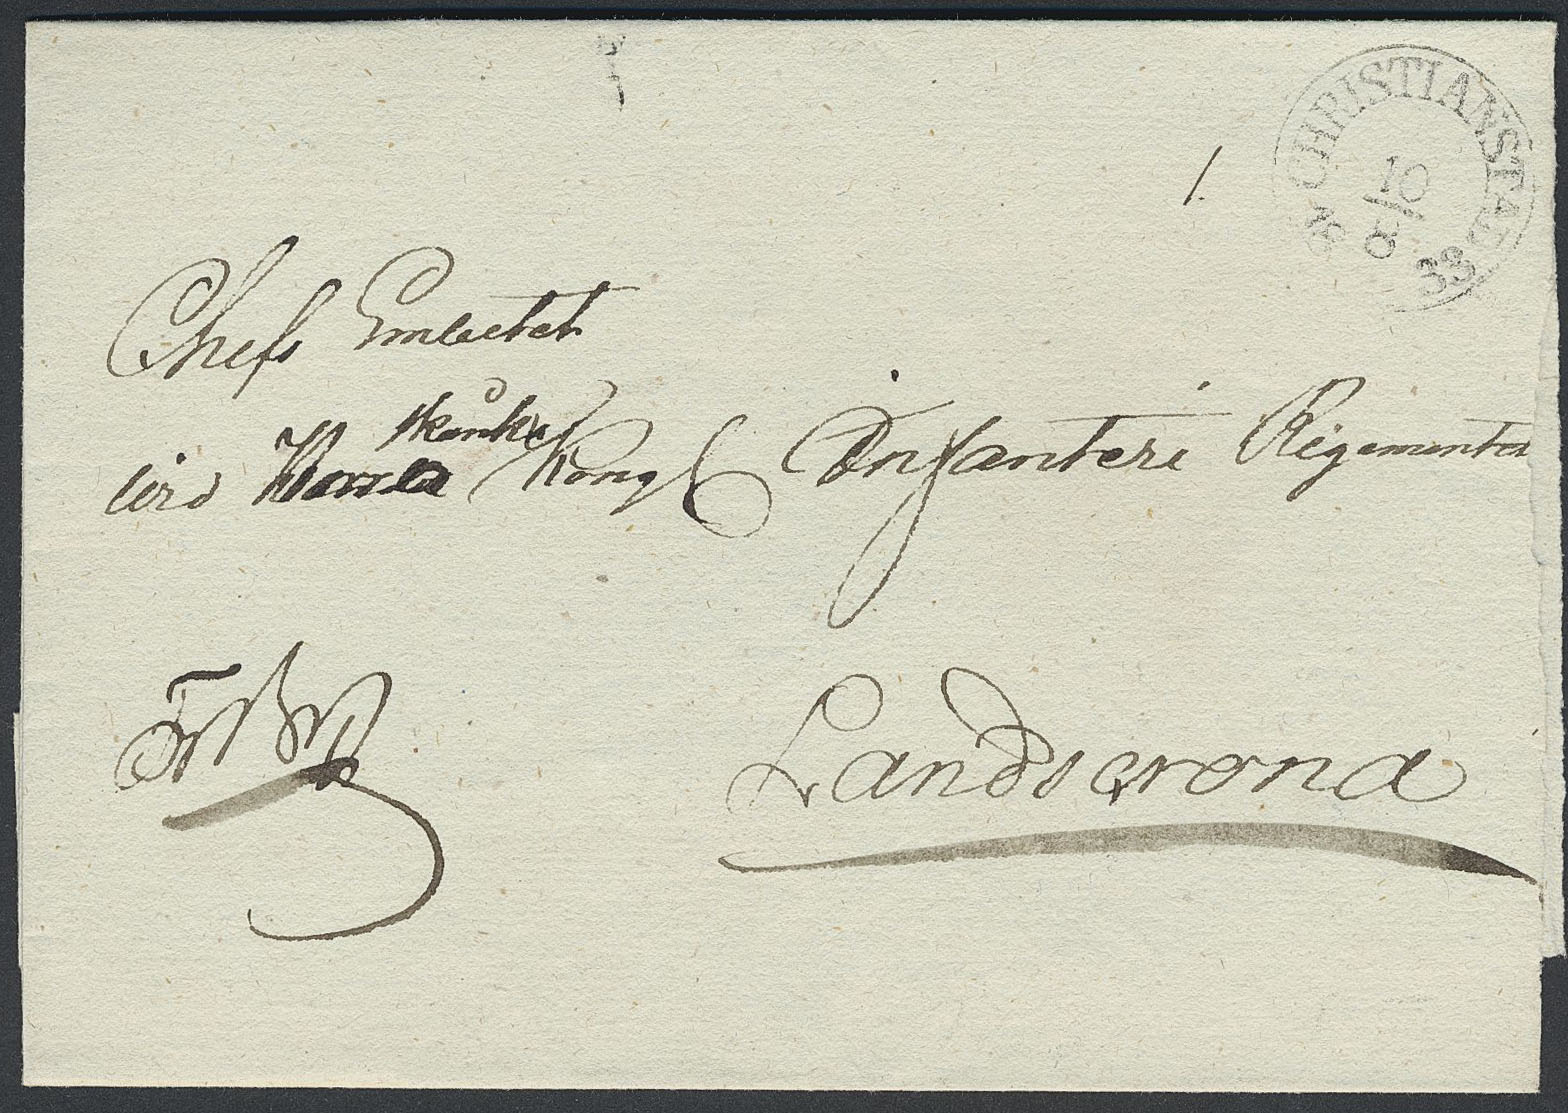 CHRISTIANSTAD
10
8
33
1.
Chefs Embetet
skånska
wid Kongl Infanteri Regementet
Landscrona